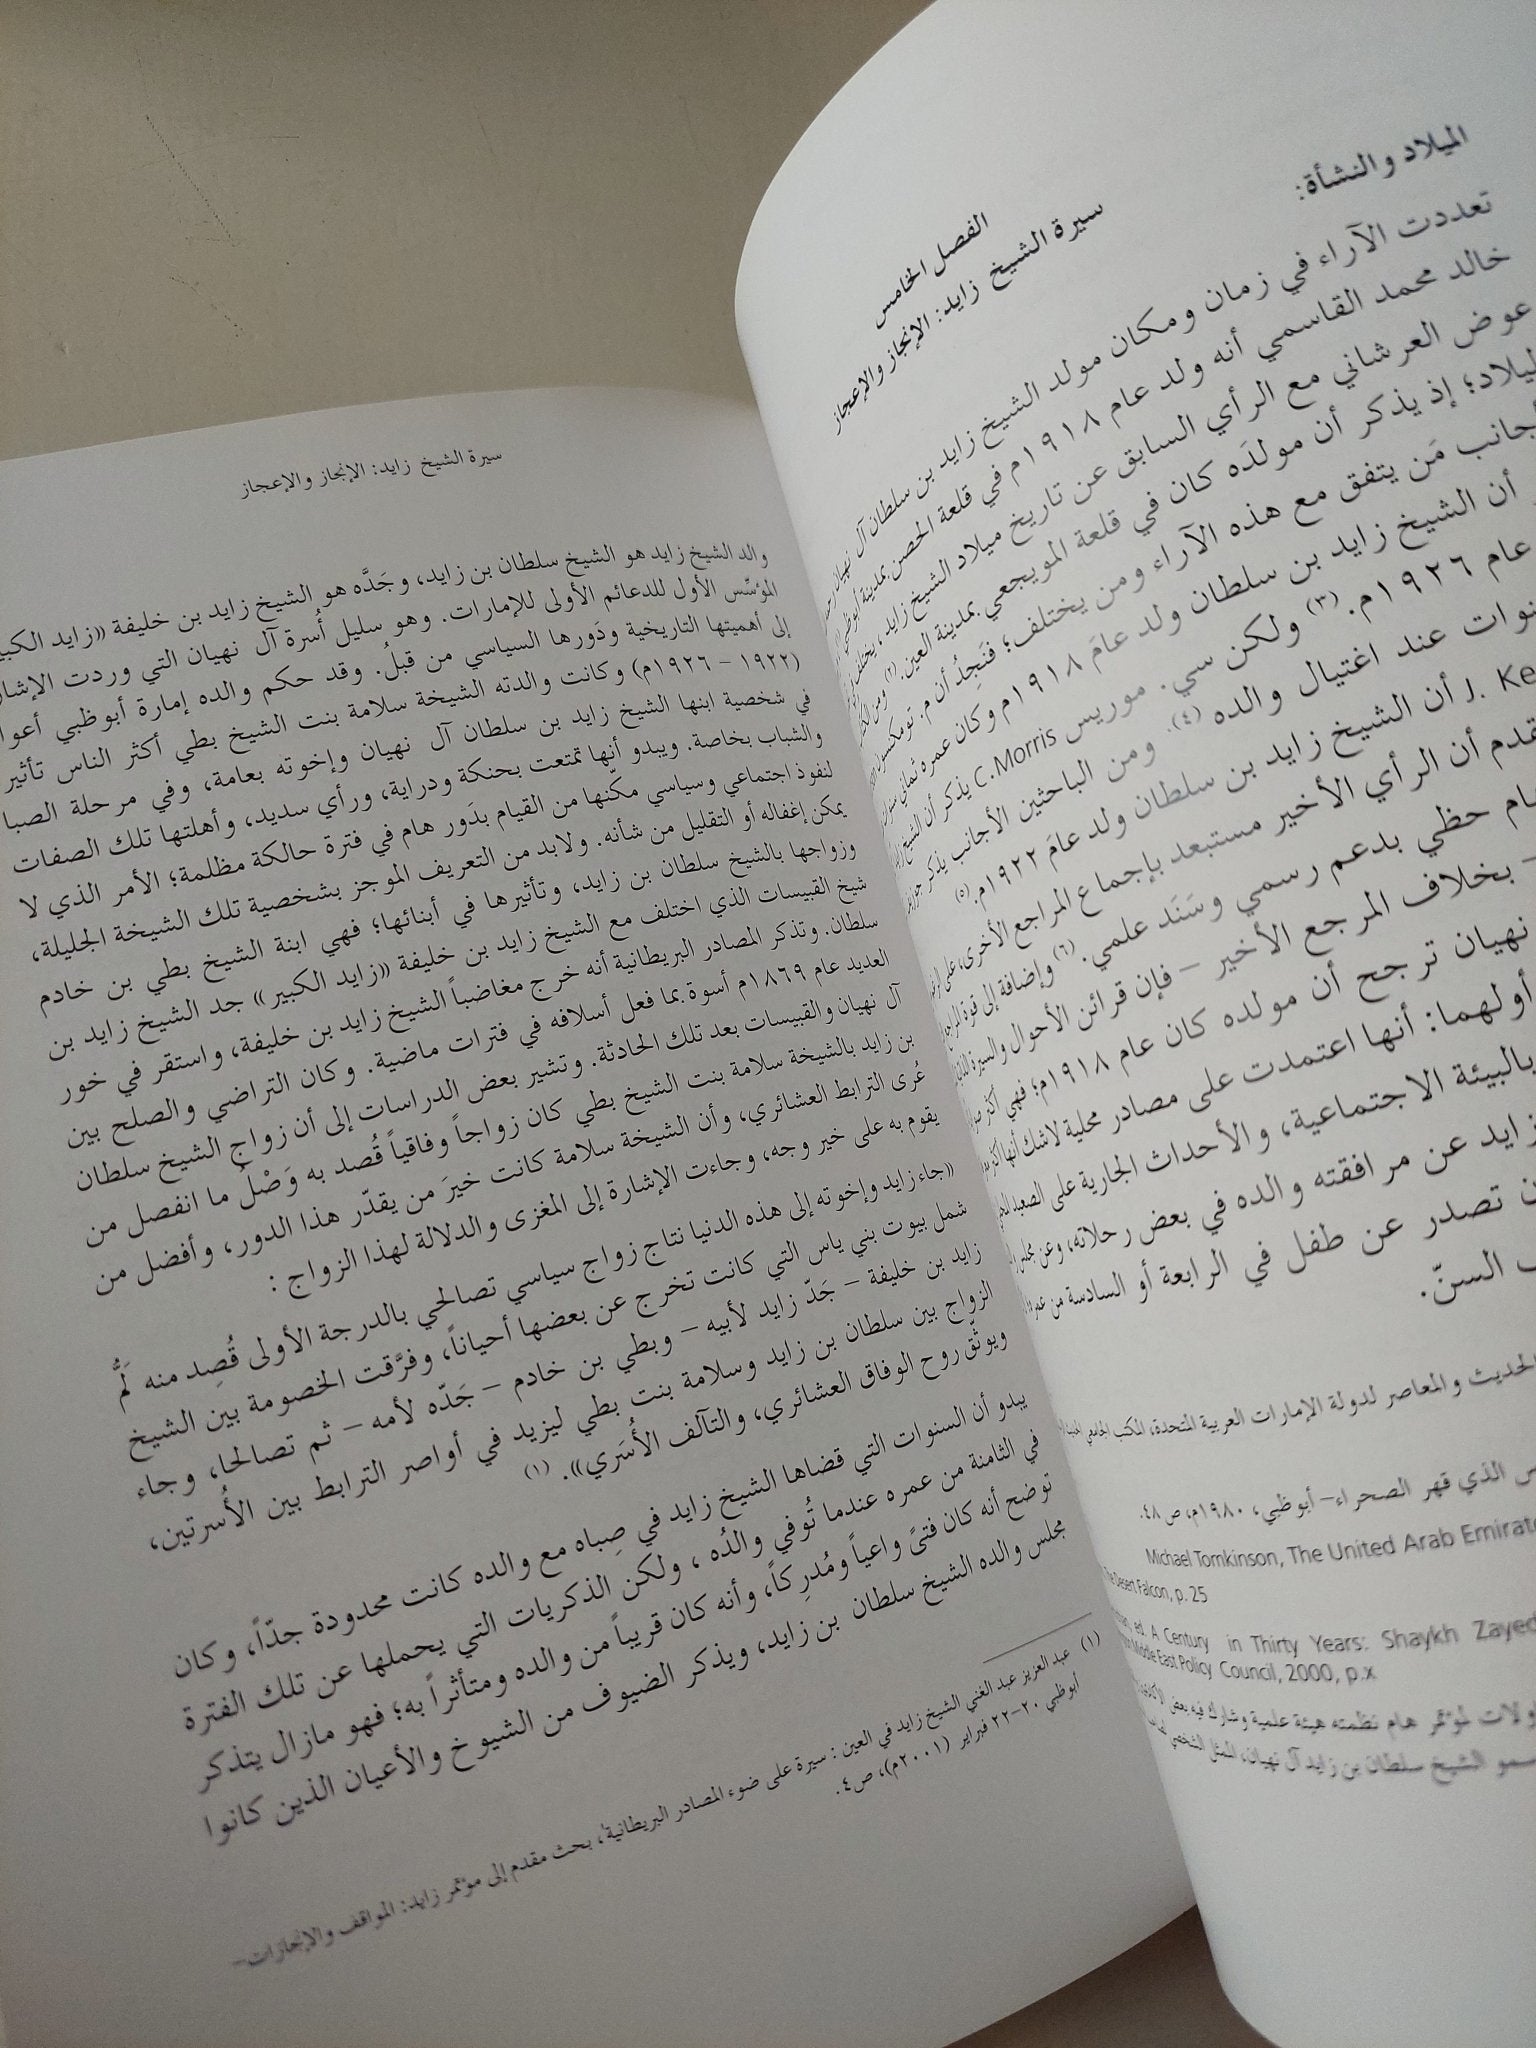 الفصل الخامس
سيرة الشيخ زايد: الإنجاز والإعجاز
الميلاد والنشأة:
تعددت الآراء في زمان ومكان مولد الشيخ زايد بن سلطان آل نهيان
خالد محمد القاسمي أنه ولد عام ١٩١٨م في قلعة الحصن بمدينة أبوظبي
عوض العرشاني مع الرأي السابق عن تاريخ ميلاد الشيخ زايد، يختلف
إذ يذكر أن مولدَه كان في قلعة المويجعي بمدينة العين. (٢)
مَن يتفق مع هذه الآراء ومن يختلف؛ فنَجِدُ أن م. تومكنسن
أن الشيخ زايد بن سلطان ولد عامَ ١٩١٨م وكان عمره ثماني
عام ١٩٢٦م. (٣) ولكن سي. موريس C.Morris يذكر أن الشيخ
عند اغتيال والده (٤). ومن الباحثين الأجانب يذكر
أن الشيخ زايد بن سلطان ولد عامَ ١٩٢٢م. (٥)
أن الرأي الأخير مستبعد بإجماع المراجع الأخرى، على
حظي بدعم رسمي وسَنَد علمي. (٦) وإضافة إلى قوة
– بخلاف المرجع الأخير – فإن قرائن الأحوال والسيرة
نهيان ترجح أن مولده كان عام ١٩١٨م؛ فهي أكثر
أولهما: أنها اعتمدت على مصادر محلية لاشك أنها أكثر
بالبيئة الاجتماعية، والأحداث الجارية على الصعيد
زايد عن مرافقته والده في بعض رحلاته، وعن مجلس
تصدر عن طفل في الرابعة أو السادسة من عمره
السنّ.
الحديث والمعاصر لدولة الإمارات العربية المتحدة، المكتب الجامعي
الذي قهر الصحراء – أبوظبي، ١٩٨٠م، ص ٤٨.
Michael Tomkinson, The United Arab Emirate
The Desert Falcon, p. 25
ed. A Century in Thirty Years: Shaykh Zayed
Middle East Policy Council, 2000, p.x
لمؤتمر هام نظمته هيئة علمية وشارك فيه بعض
سمو الشيخ سلطان بن زايد آل نهيان، الممثل الشخصي
سيرة الشيخ زايد: الإنجاز والإعجاز
والد الشيخ زايد هو الشيخ سلطان بن زايد، وجَدَّه هو الشيخ زايد بن خليفة «زايد
المؤسِّس الأول للدعائم الأولى للإمارات. وهو سليل أُسرة آل نهيان التي وردت
إلى أهميتها التاريخية ودَورها السياسي من قبلُ. وقد حكم والده إمارة أبوظبي
(١٩٢٢ – ١٩٢٦م) وكانت والدته الشيخة سلامة بنت الشيخ بطي أكثر الناس
في شخصية ابنها الشيخ زايد بن سلطان آل نهيان وإخوته بعامة، وفي مرحلة الصبا
والشباب بخاصة. ويبدو أنها تمتعت بحنكة ودراية، ورأي سديد، وأهلتها تلك الصفات
لنفوذ اجتماعي وسياسي مكّنها من القيام بدَور هام في فترة حالكة مظلمة؛ الأمر الذي لا
يمكن إغفاله أو التقليل من شأنه. ولابد من التعريف الموجز بشخصية تلك الشيخة الجليلة،
وزواجها بالشيخ سلطان بن زايد، وتأثيرها في أبنائها؛ فهي ابنة الشيخ بطي بن خادم
شيخ القبيسات الذي اختلف مع الشيخ زايد بن خليفة «زايد الكبير» جد الشيخ زايد بن
سلطان. وتذكر المصادر البريطانية أنه خرج مغاضباً الشيخ زايد بن خليفة، واستقر في خور
العديد عام ١٨٦٩م أسوة بما فعل أسلافه في فترات ماضية. وكان التراضي والصلح بين
آل نهيان والقبيسات بعد تلك الحادثة. وتشير بعض الدراسات إلى أن زواج الشيخ سلطان
بن زايد بالشيخة سلامة بنت الشيخ بطي كان زواجاً وفاقياً قُصد به وَصْلُ ما انفصل من
عُرى الترابط العشائري، وأن الشيخة سلامة كانت خيرَ من يقدّر هذا الدور، وأفضل من
يقوم به على خير وجه، وجاءت الإشارة إلى المغزى والدلالة لهذا الزواج :
«جاء زايد وإخوته إلى هذه الدنيا نتاج زواج سياسي تصالحي بالدرجة الأولى قُصِد منه لَمُّ
شمل بيوت بني ياس التي كانت تخرج عن بعضها أحياناً، وفرَّقت الخصومة بين الشيخ
زايد بن خليفة – جَدّ زايد لأبيه – وبطي بن خادم – جَدّه لأمه – ثم تصالحا، وجاء
الزواج بين سلطان بن زايد وسلامة بنت بطي ليزيد في أواصر الترابط بين الأُسرتين،
ويوثّق روح الوفاق العشائري، والتآلف الأُسَري». (١)
يبدو أن السنوات التي قضاها الشيخ زايد في صِباه مع والده كانت محدودة جدّاً، وكان
في الثامنة من عمره عندما تُوفي والدُه ، ولكن الذكريات التي يحملها عن تلك الفترة
توضح أنه كان فتىً واعياً ومُدرِكاً، وأنه كان قريباً من والده ومتأثراً به؛ فهو مازال يتذكر
مجلس والده الشيخ سلطان بن زايد، ويذكر الضيوف من الشيوخ والأعيان الذين كانوا
(١) عبد العزيز عبد الغني الشيخ زايد في العين : سيرة على ضوء المصادر البريطانية، بحث مقدم إلى مؤتمر زايد: المواقف والإنجازات –
أبوظبي ٢٠–٢٢ فبراير (٢٠٠١م)، ص٤.